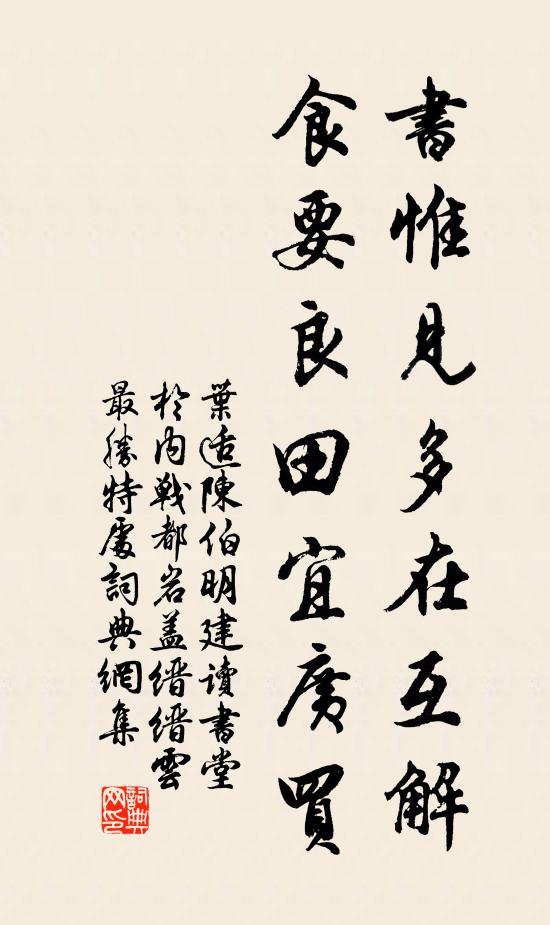 書惟見多在互解
食要良田宜廣買
葉适陳伯明建讀書堂
於内戰都岩盖縉縉雲
最勝特處詞典網集
詞典网印